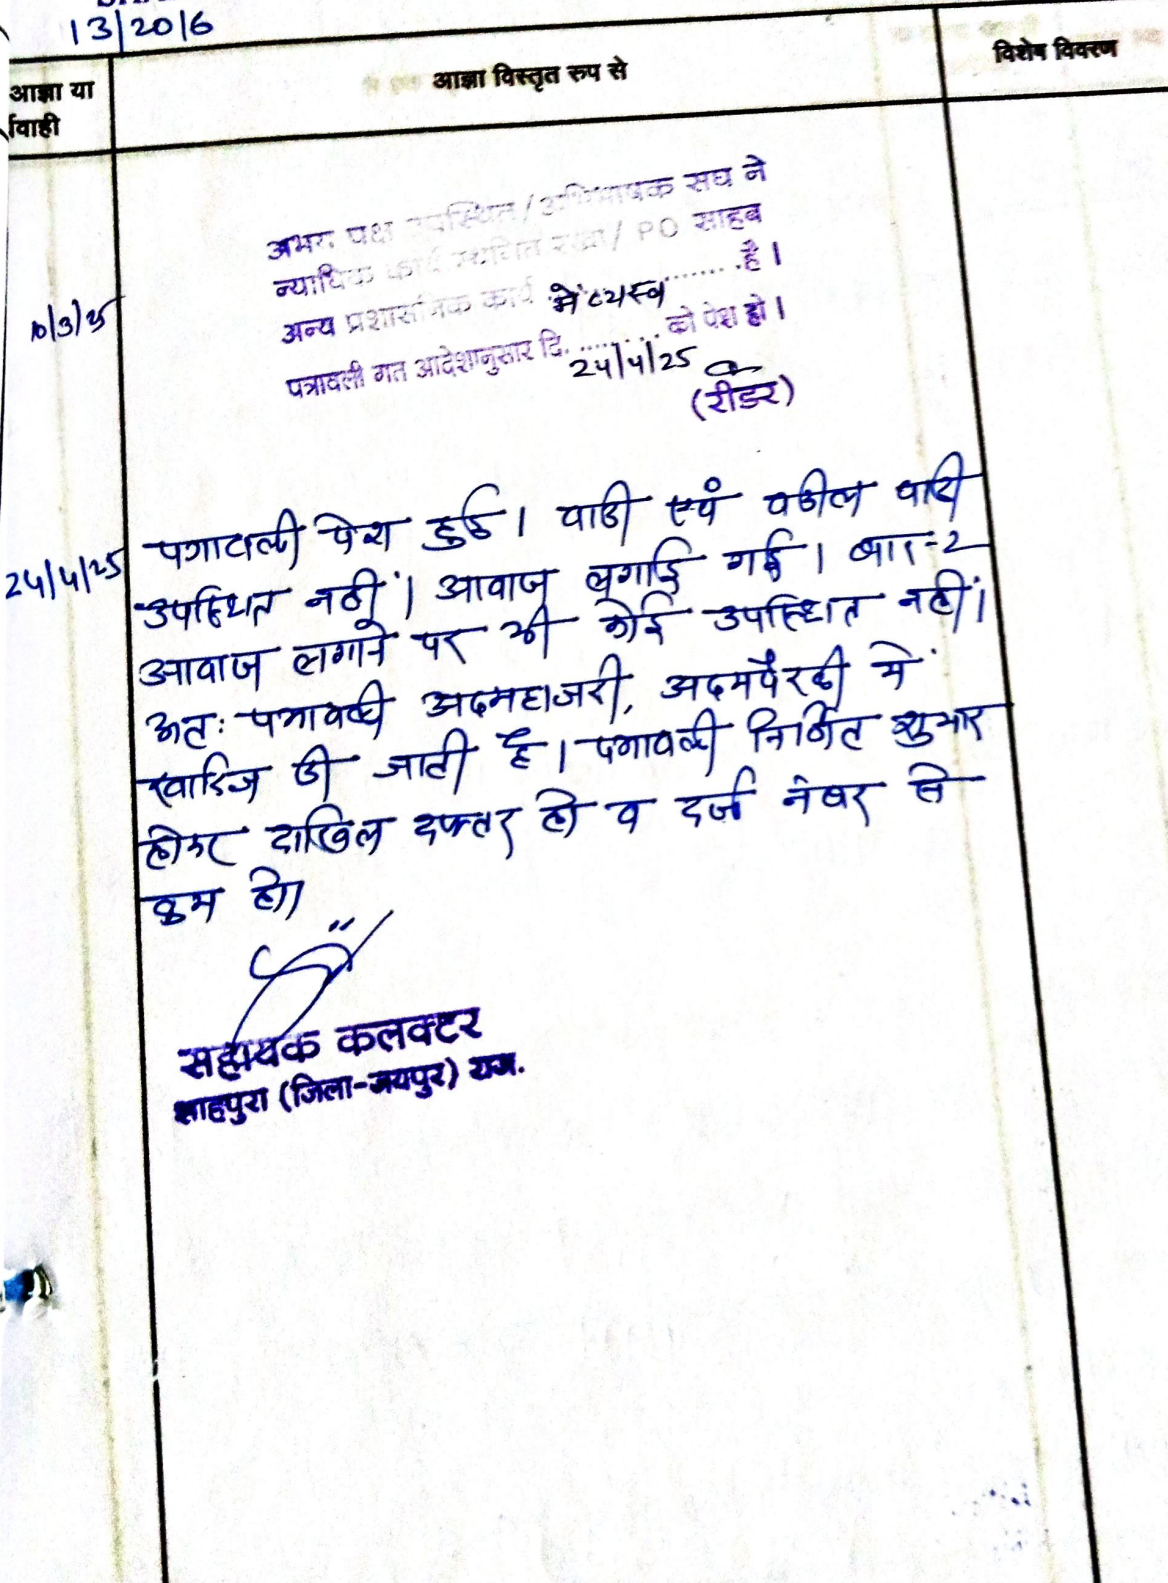 13/2016
आज्ञा या
र्वाही
आज्ञा विस्तृत रूप से
विशेष विवरण
10/3/25
अभय पक्ष उपस्थित/अभिभाषक संघ ने
न्यायिक कार्य स्थगित रखा/ PO साहब
अन्य प्रशासनिक कार्य में व्यस्त ........ है।
पत्रावली गत आदेशानुसार दि. 24/4/25 को पेश हो।
(रीडर)
24/4/25
पत्रावली पेश हुई। वादी एवं वकील वादी
उपस्थित नहीं। आवाज लगाई गई। बार-2
आवाज लगाने पर भी कोई उपस्थित नहीं।
अतः पत्रावली अदमहाजरी, अदमपैरवी में
खारिज की जाती है। पत्रावली निर्णित शुमार
होकर दाखिल दफ्तर हो व दर्ज नंबर से
कम हो।
सहायक कलक्टर
शाहपुरा (जिला-जयपुर) राज.